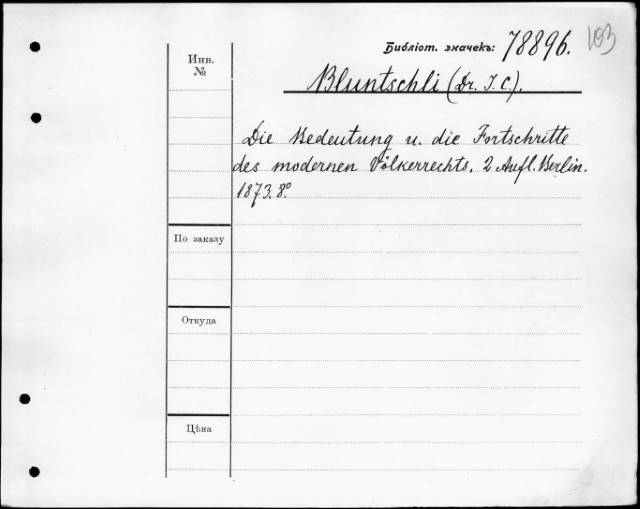 Библіот. значекъ: 78896. 103
Инв. №
Bluntschli (Dr. J. C.).
Die Bedeutung u. die Fortschritte
des modernen Völkerrechts. 2 Aufl. Berlin.
1873. 8º.
По заказу
Откуда
Цѣна